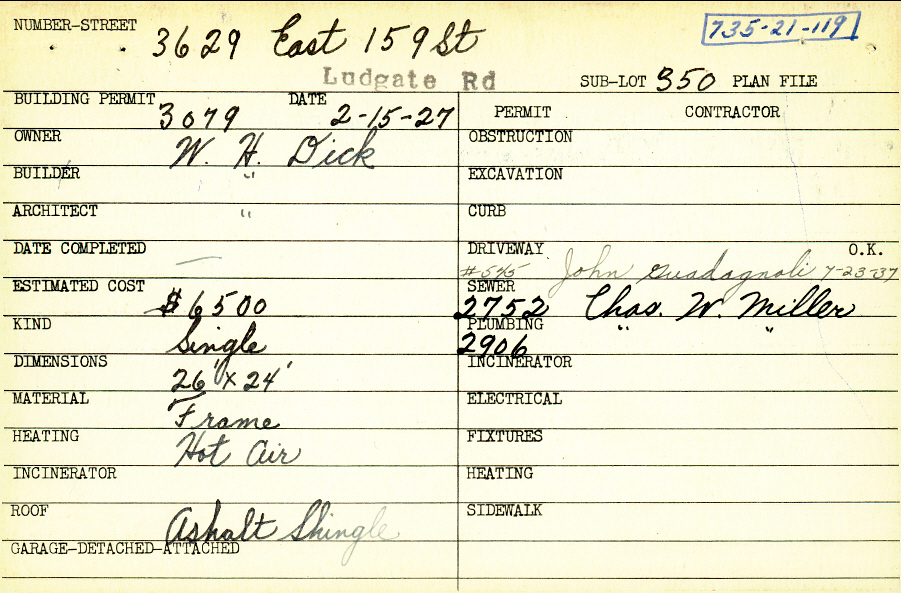 NUMBER-STREET 3629 East 159 St 735-21-119
Ludgate Rd SUB-LOT 350 PLAN FILE
BUILDING PERMIT 3079 DATE 2-15-27 PERMIT CONTRACTOR
OWNER W. H. Dick OBSTRUCTION
BUILDER " EXCAVATION
ARCHITECT " CURB
DATE COMPLETED — DRIVEWAY #545 John Guadagnoli 7-23-37 O.K.
ESTIMATED COST $6500 SEWER 2752 Chas. W. Miller
KIND Single PLUMBING 2906 " "
DIMENSIONS 26' x 24' INCINERATOR
MATERIAL Frame ELECTRICAL
HEATING Hot Air FIXTURES
INCINERATOR HEATING
ROOF Ashalt Shingle SIDEWALK
GARAGE-DETACHED-ATTACHED